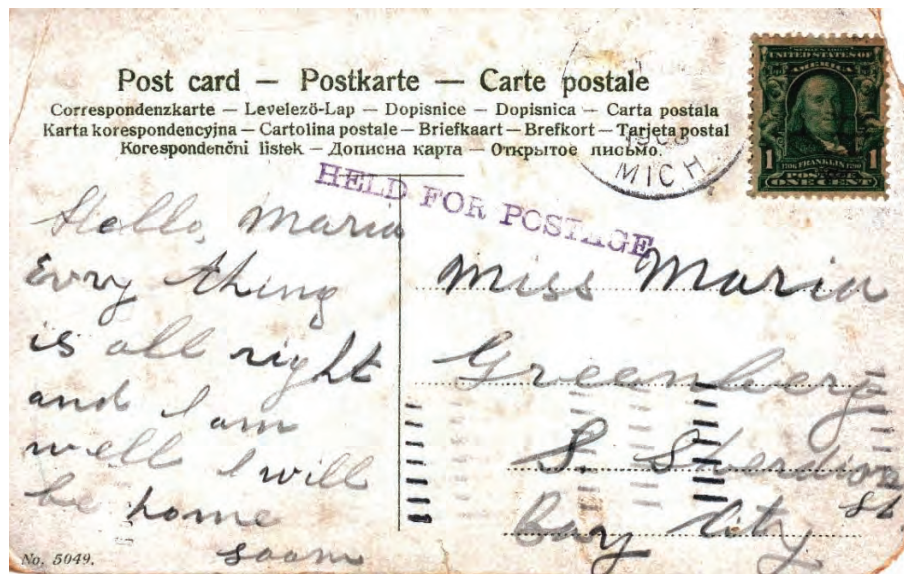 Post card — Postkarte — Carte postale
Correspondenzkarte — Levelezö-Lap — Dopisnice — Dopisnica — Carta postala
Karta korespondencyjna — Cartolina postale — Briefkaart — Brefkort — Tarjeta postal
Korespondenčni listek — Дописна карта — Открытое письмо.
UNITED STATES OF
AMERICA
1 1706 FRANKLIN 1790 1
ONE CENT
MICH
HELD FOR POSTAGE
Hello, Maria
Evry thing
is all right
and I am
well I will
be home
soom
Miss Maria
Greenberg
S. Sheridan
St.
Bay City
No. 5049.